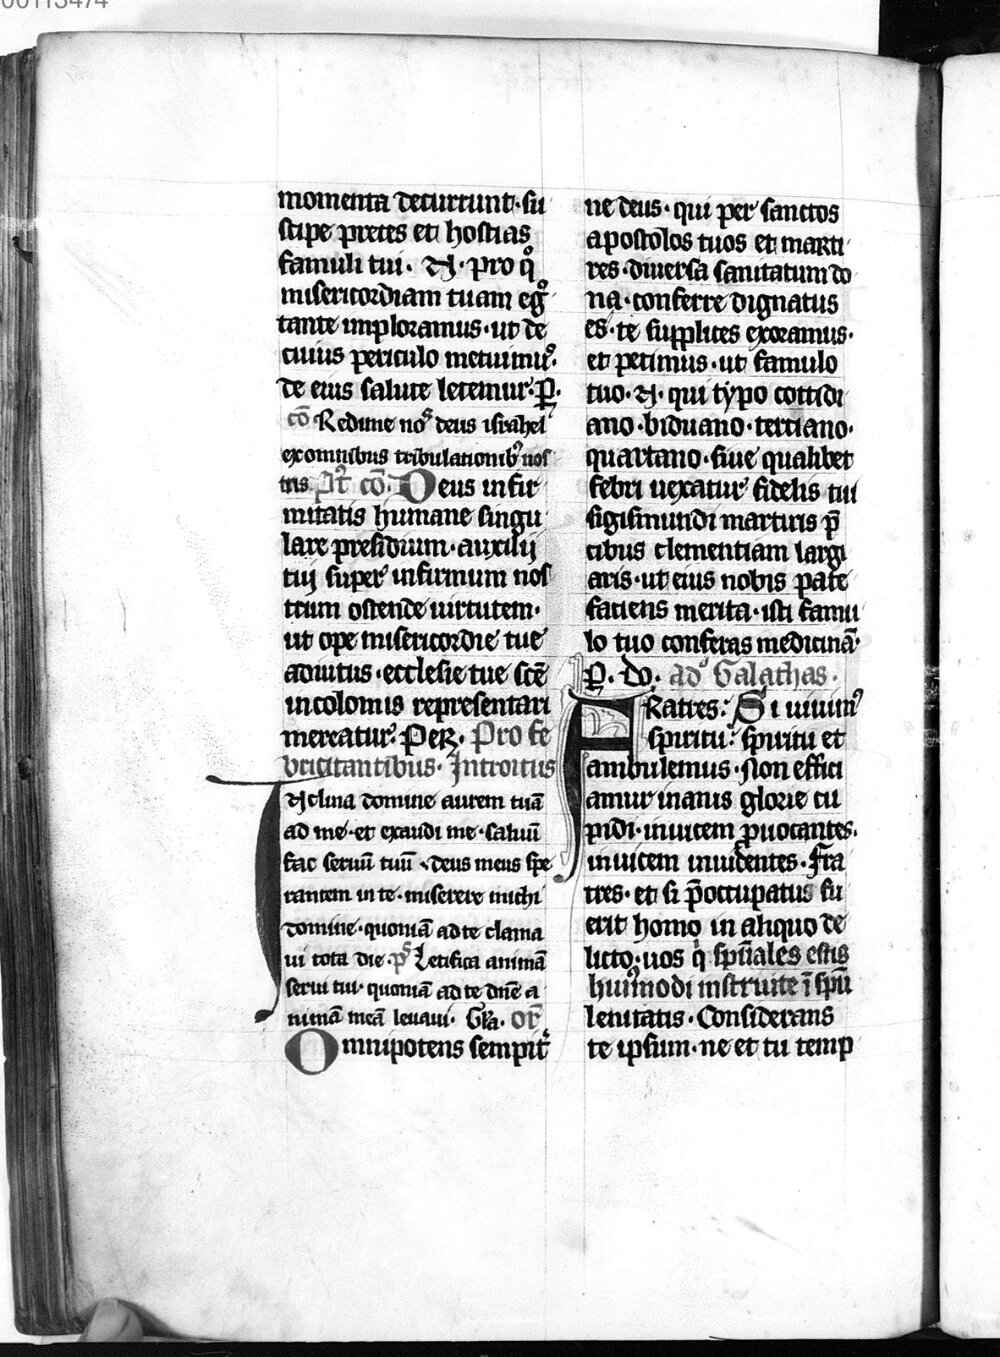 00113474
momenta decurrunt· su
scipe preces et hostias
famuli tui· N· pro qͦ
misericordiam tuam egͦ
tante imploramus· ut de
cuius periculo metuimuꝰ·
de eius salute letemur· P̱·
co͞ Redime noˢ deus israhel
ex omnibus tribulationibꝰ nos
tris. P̃t co͞· Deus infir
mitatis humane singu
lare presidium· auxilij
tui super infirmum nos
trum ostende uirtutem·
ut ope misericordie tue
adiutus· ecclesie tue sce͞
incolomis representari
mereatur· Per· Pro fe
bricitantibus· Introitus
INclina domine aurem tua͞
ad me· et exaudi me· saluu͞
fac seruu͞ tuu͞· deus meus spe
rantem in te· miserere michi
domine· quonia͞ ad te clama
ui tota die· pˢ Letifica anima͞
serui tui· quonia͞ ad te dn͞e a
nima͞ mea͞ leuaui· Gl͞a· or͞
Omnipotens sempit͛
ne deus· qui per sanctos
apostolos tuos et marti
res· diuersa sanitatum do
na· conferre dignatus
es· te supplices exoramus·
et petimus· ut famulo
tuo· N· qui typo cottidi
ano· biduano· tertiano·
quartano· siue qualibet
febri uexatur· fidelis tui
sigismundi martiris p͞
cibus clementiam largi
aris· ut eius nobis pate
faciens merita· isti famu
lo tuo conferas medicina͞·
P̱· do· adͦ Galathas·
FRatres: Si uiuimꝰ
spiritu: spiritu et
ambulemus· Non effici
amur inanis glorie cu
pidi· inuicem ꝓuocantes·
inuicem inuidentes· Fra
tres· et si p͞occupatus fu
erit homo in aliquo de
licto· uos qͥ spu͞ales estis
huiꝰmodi instruite i͞ spu͞
lenitatis· Considerans
te ipsum· ne et tu temp